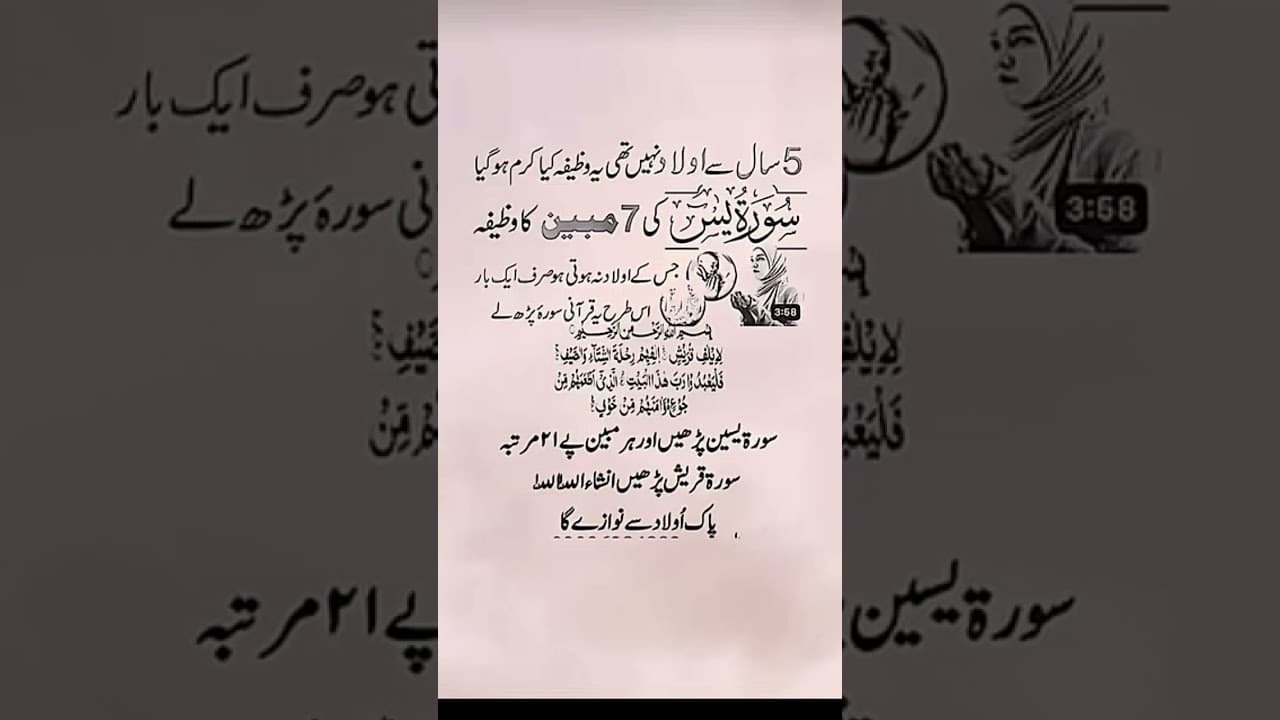 5 سال سے اولاد نہیں تھی یہ وظیفہ کیا کرم ہو گیا
سُورَۃُ یٰسٓ کی 7 مبین کا وظیفہ
جس کے اولاد نہ ہوتی ہو صرف ایک بار
اس طرح یہ قرآنی سورۂ پڑھ لے
3:58
بِسْمِ اللّٰهِ الرَّحْمٰنِ الرَّحِیْمِ
لِاِیْلٰفِ قُرَیْشٍ اٖلٰفِهِمْ رِحْلَةَ الشِّتَآءِ وَالصَّیْفِ
فَلْیَعْبُدُوْا رَبَّ هٰذَا الْبَیْتِ الَّذِیْٓ اَطْعَمَهُمْ مِّنْ
جُوْعٍ وَّاٰمَنَهُمْ مِّنْ خَوْفٍ
سورۃ یسین پڑھیں اور ہر مبین پے ۲۱ مرتبہ
سورۃ قریش پڑھیں انشاء اللہ اللہ
پاک اُولاد سے نوازے گا
تی ہو صرف ایک بار
نی سورۂ پڑھ لے
3:58
پے ۲۱ مرتبہ
سورۃ یسین